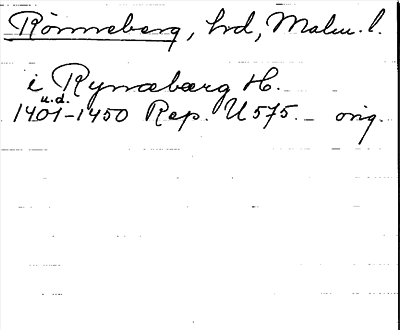 Rönneberg, hrd, Malm. l.
i Rymæbærg H.
u.d.
1401-1450 Rep. U 575. - orig.